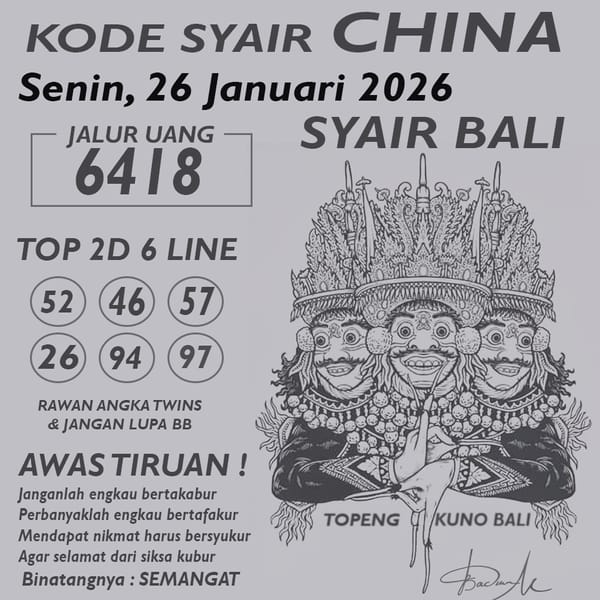 KODE SYAIR CHINA
Senin, 26 Januari 2026
SYAIR BALI
JALUR UANG
6418
TOP 2D 6 LINE
52 46 57
26 94 97
RAWAN ANGKA TWINS
& JANGAN LUPA BB
AWAS TIRUAN !
Janganlah engkau bertakabur
Perbanyaklah engkau bertafakur
Mendapat nikmat harus bersyukur
Agar selamat dari siksa kubur
Binatangnya : SEMANGAT
TOPENG KUNO BALI